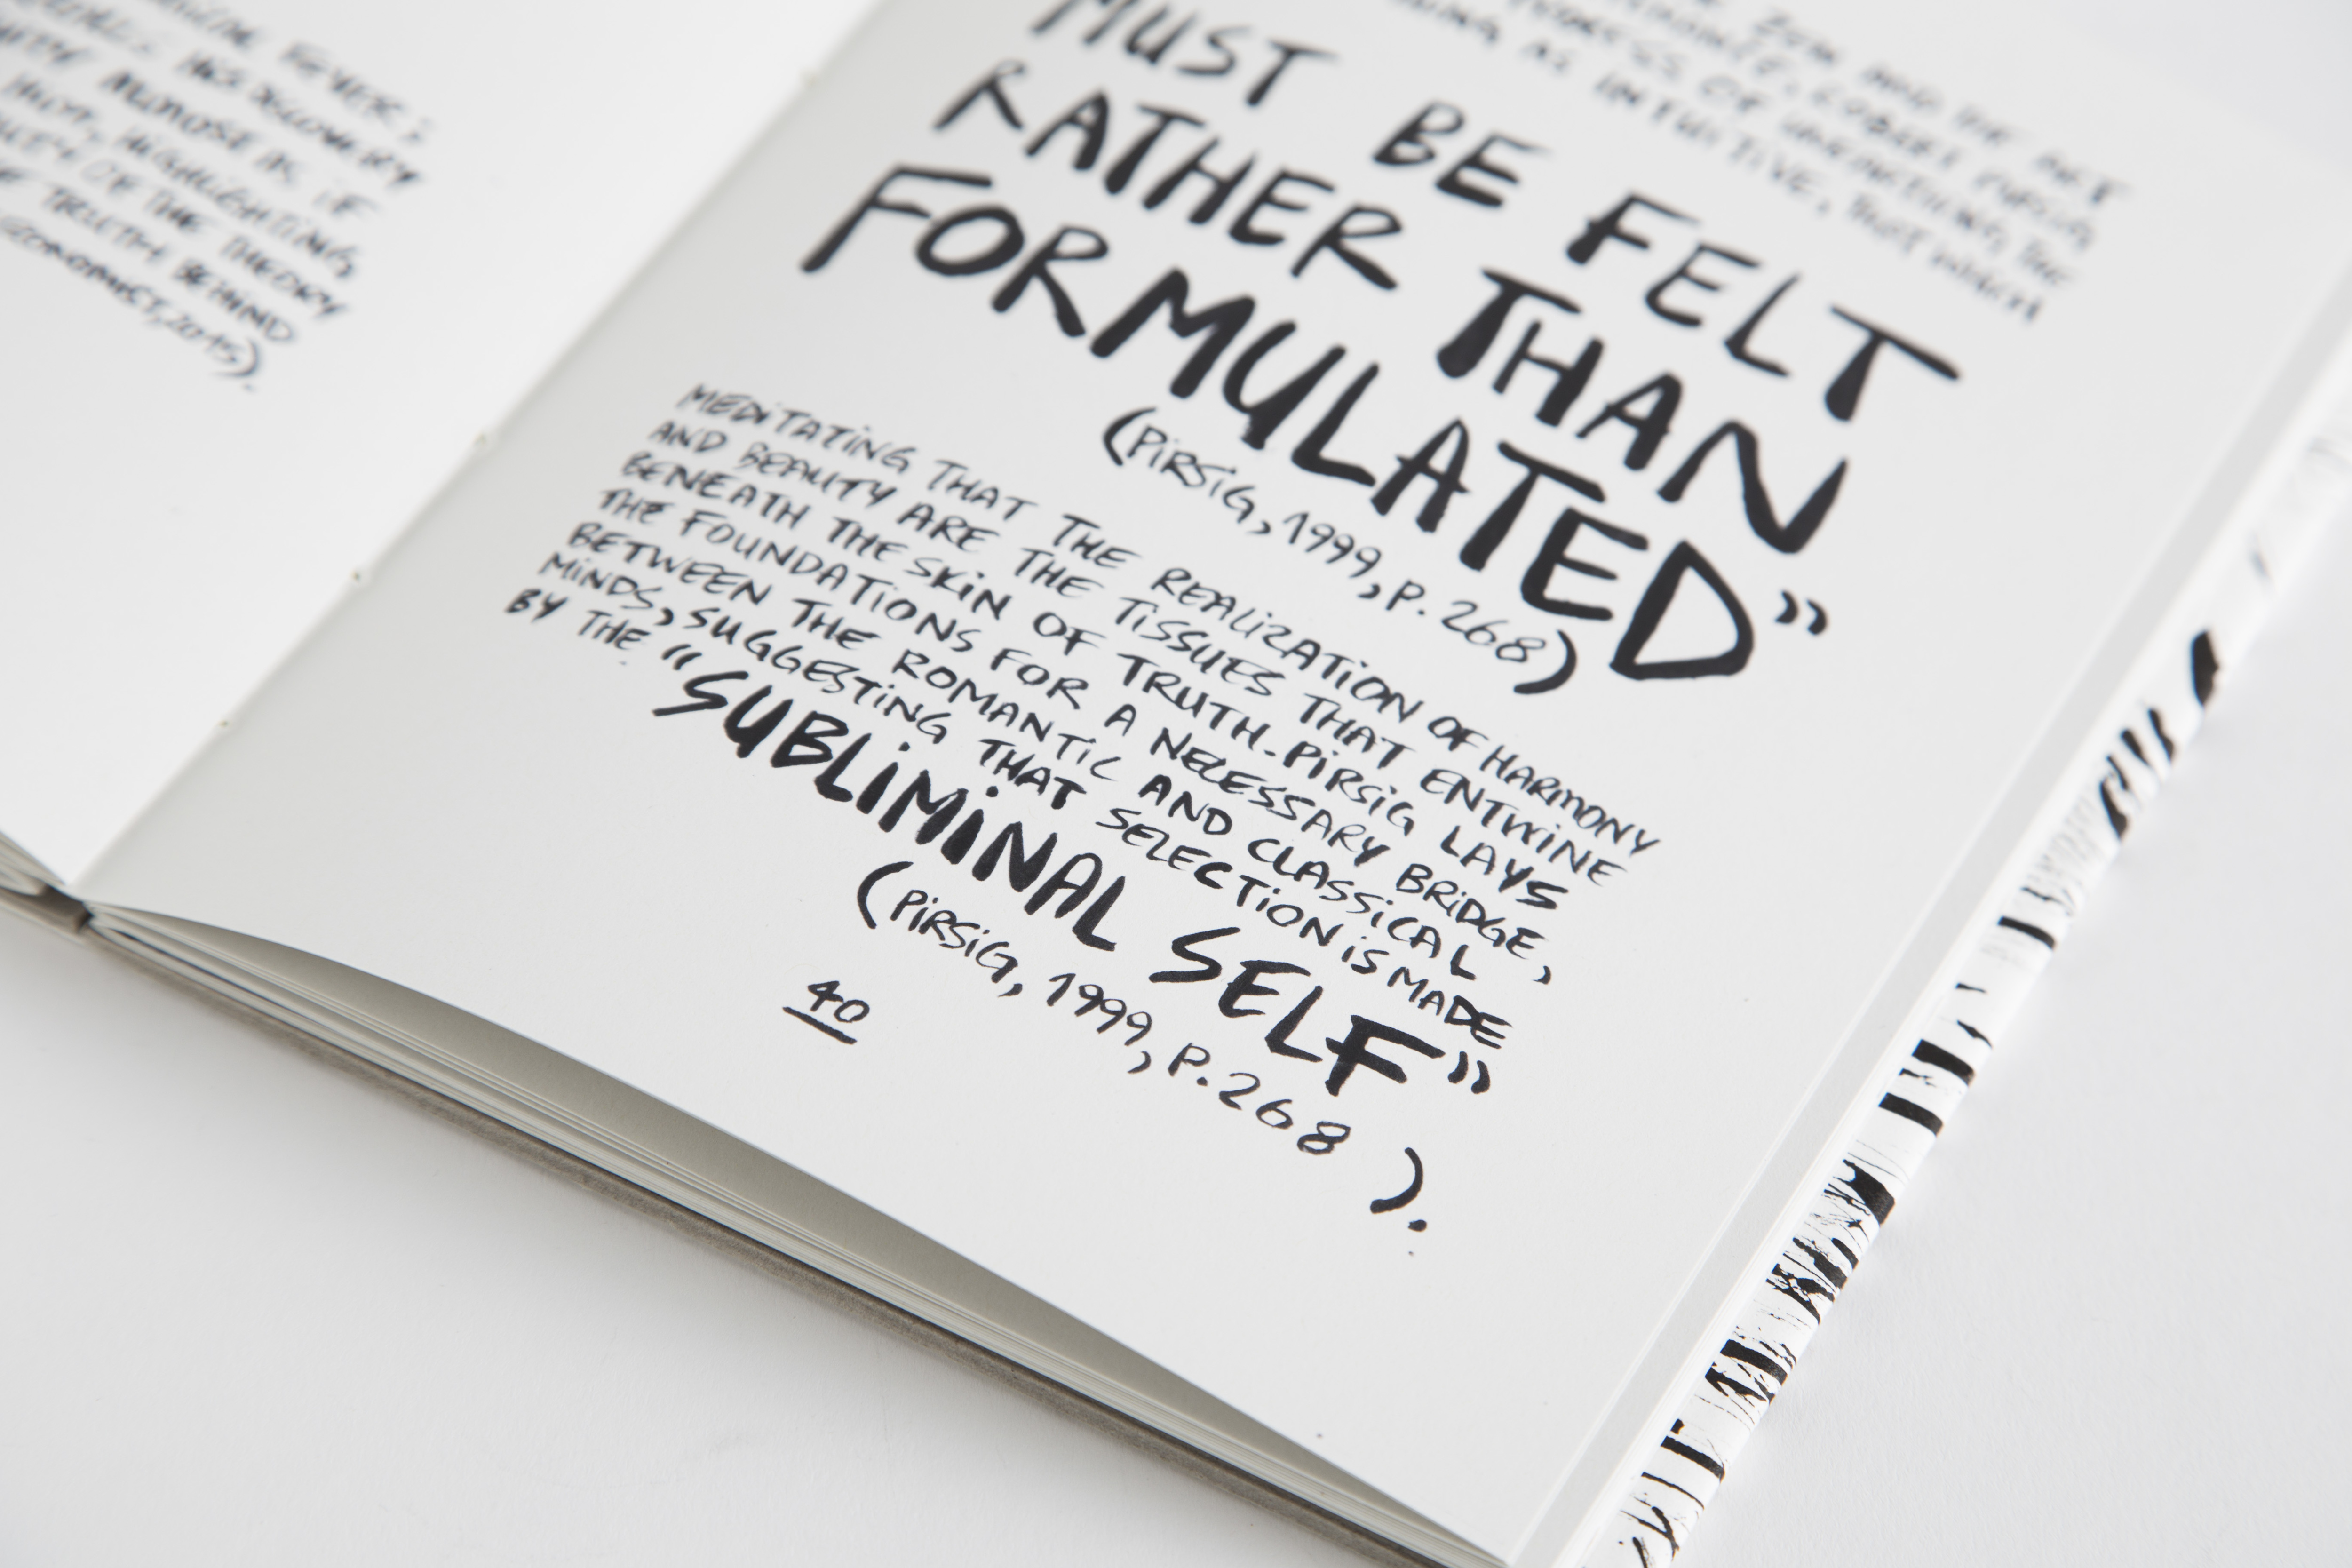 FEVER;
HIS DISCOVERY
AS IF
HIM, HIGHLIGHTING,
OF THE THEORY
TRUTH BEHIND
ECONOMIST, 2015).
ZEN AND THE ART
OF
AS INTUITIVE, THAT WHICH
MUST BE FELT
RATHER THAN
FORMULATED”
(PiRSiG, 1999, P. 268)
MEDiTATiNG THAT THE REALiZATiON OF HARMONY
AND BEAUTY ARE THE TiSSUES THAT ENTWiNE
BENEATH THE SKiN OF TRUTH. PiRSiG LAYS
THE FOUNDATiONS FOR A NECESSARY BRiDGE,
BETWEEN THE ROMANTiC AND CLASSiCAL
MiNDS, SUGGESTiNG THAT SELECTiON iS MADE
BY THE “SUBLiMiNAL SELF”
(PiRSiG, 1999, P. 268).
40